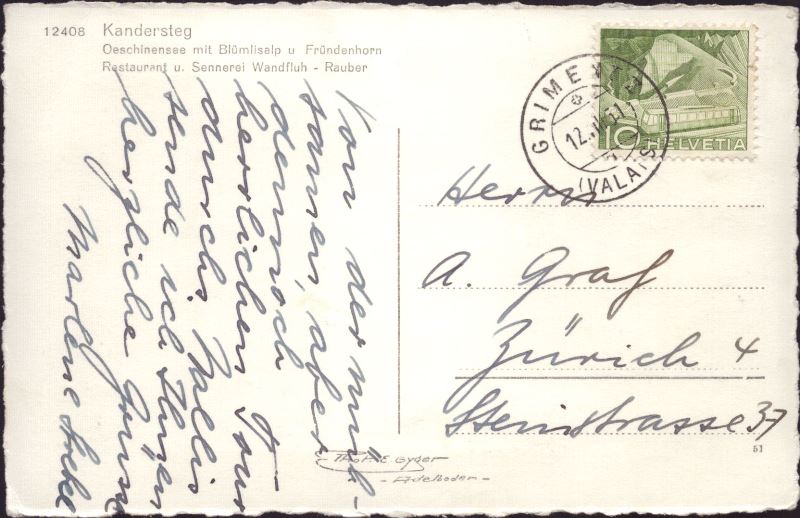 12408 Kandersteg
Oeschinensee mit Blümlisalp u Fründenhorn
Restaurant u. Sennerei Wandfluh - Rauber
Von der müh-
samen, aber
dennoch
herrlichen Tour
durchs Wallis
sende ich Ihnen
herzliche Grüsse
Marlene
GRIMENTZ
12.
51
(VALAIS)
10 HELVETIA
Herrn
A. Graf
Zürich 4
Steinstrasse 37
51
Phot. E. Gyger
- Adelboden -